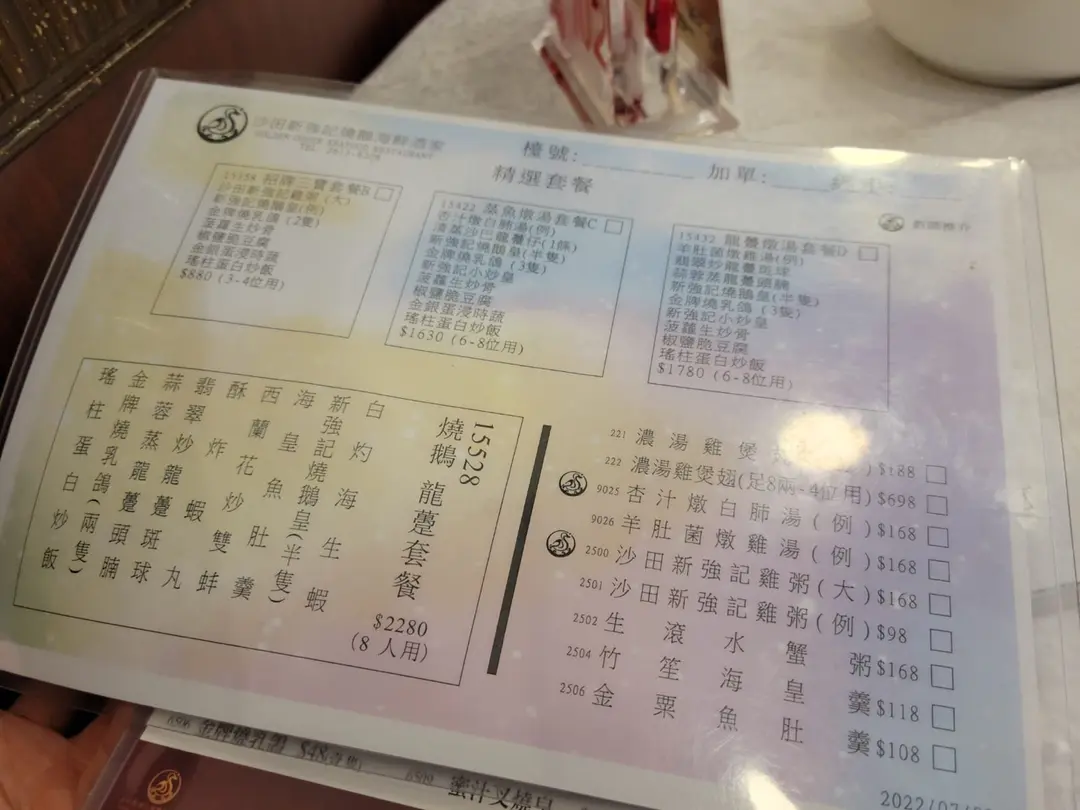 沙田新強記燒鵝海鮮酒家
GOLDEN GOOSE SEAFOOD RESTAURANT
檯號:
加單:
精選套餐
招牌二寶套餐B
沙田新強記雞粥(大)
新強記燒鵝皇(例)
金牌燒乳鴿(2隻)
菠蘿生炒骨
椒鹽脆豆腐
金銀蛋浸時蔬
瑤柱蛋白炒飯
$880 (3-4位用)
15422 蒸魚燉湯套餐C
杏汁燉白肺湯(例)
清蒸沙巴龍躉仔(1條)
新強記燒鵝皇(半隻)
金牌燒乳鴿 (3隻)
新強記小炒皇
菠蘿生炒骨
椒鹽脆豆腐
金銀蛋浸時蔬
瑤柱蛋白炒飯
$1630 (6-8位用)
15432 龍躉燉湯套餐D
羊肚菌燉雞湯(例)
翡翠炒龍躉斑球
蒜蓉蒸龍躉頭腩
新強記燒鵝皇(半隻)
金牌燒乳鴿 (3隻)
新強記小炒皇
菠蘿生炒骨
椒鹽脆豆腐
瑤柱蛋白炒飯
$1780 (6-8位用)
15528
燒鵝龍躉套餐
$2280
(8 人用)
白灼海生蝦
新強記燒鵝皇(半隻)
海皇魚肚羹
西蘭花炒雙蚌
酥炸蝦丸
翡翠炒龍躉斑球
蒜蓉蒸龍躉頭腩
金牌燒乳鴿(兩隻)
瑤柱蛋白炒飯
221 濃湯雞煲 $188
222 濃湯雞煲翅(足8兩-4位用) $698
9025 杏汁燉白肺湯(例) $168
9026 羊肚菌燉雞湯(例) $168
2500 沙田新強記雞粥(大) $168
2501 沙田新強記雞粥(例) $98
2502 生滾水蟹粥 $168
2504 竹笙海皇羹 $118
2506 金粟魚肚羹 $108
2022/07
6506 金牌燒乳鴿 $48
6509 蜜汁叉燒皇